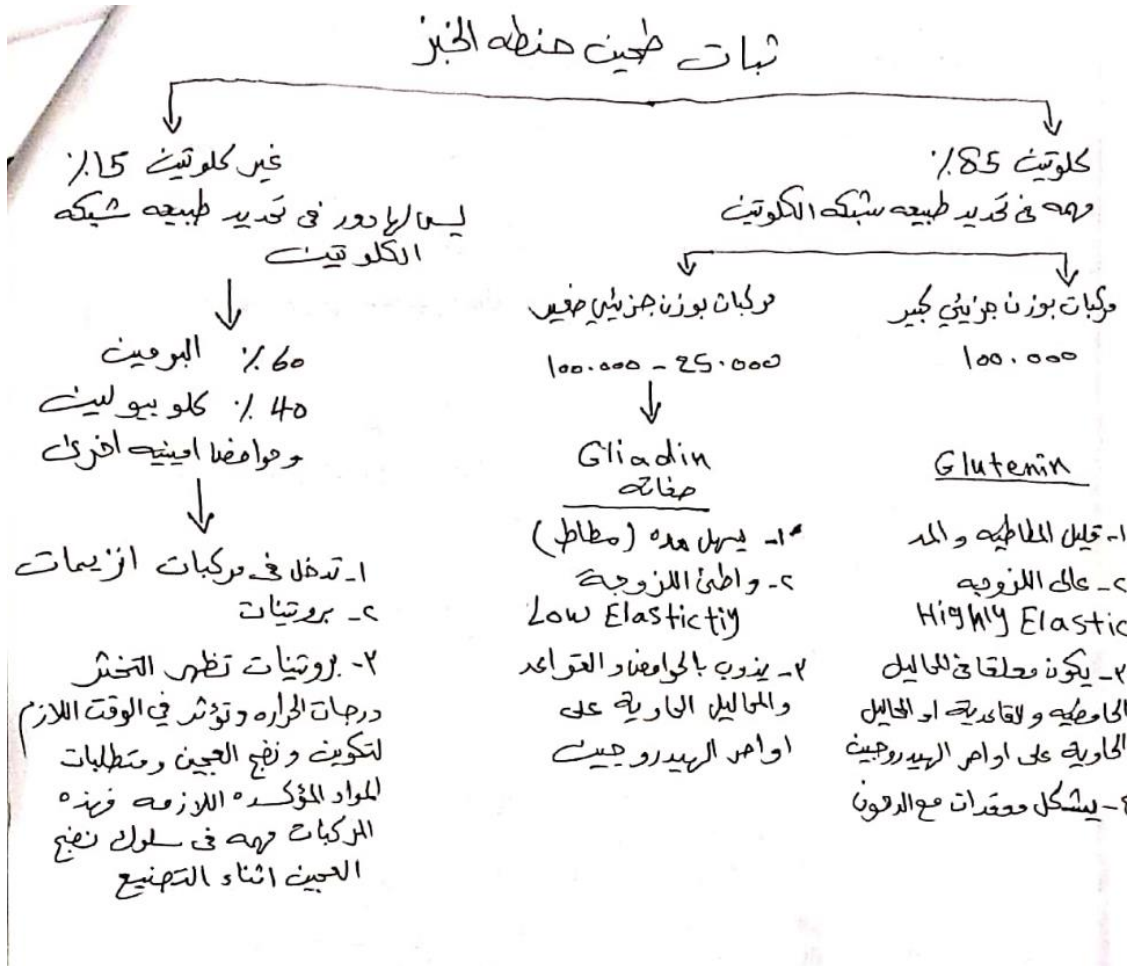 ثبات طحين حنطه الخبز
كلوتين 85٪
مهمه في تحديد طبيعه شبكه الكلوتين
مركبات بوزن جزيئي كبير
100.000
Glutenin
١- قليل المطاطيه والمد
٢- عالي اللزوجه
Highly Elastic
٣- يكون معلقا في المحاليل
الحامضيه والقاعدية او المحاليل
الحاوية على اواصر الهيدروجين
٤- يشكل معقدات مع الدهون
مركبات بوزن جزيئي صغير
100.000 - 25.000
Gliadin
صفاته
١- يسهل مده (مطاط)
٢- واطئ اللزوجة
Low Elastictiy
٣- يذوب بالحوامض والقواعد
والمحاليل الحاوية على
اواصر الهيدروجين
غير كلوتين 15٪
ليس لها دور في تحديد طبيعه شبكه
الكلوتين
60 ٪ البومين
40 ٪ كلوبيولين
وحوامضا امينيه اخرى
١- تدخل في مركبات انزيمات
٢- بروتينات
٣- بروتينات تظهر التخثر
درجات الحراره وتؤثر في الوقت اللازم
لتكوين ونضج العجين ومتطلبات
المواد المؤكسده اللازمه فهذه
المركبات مهمه في سلوك نضج
العجين اثناء التصنيع